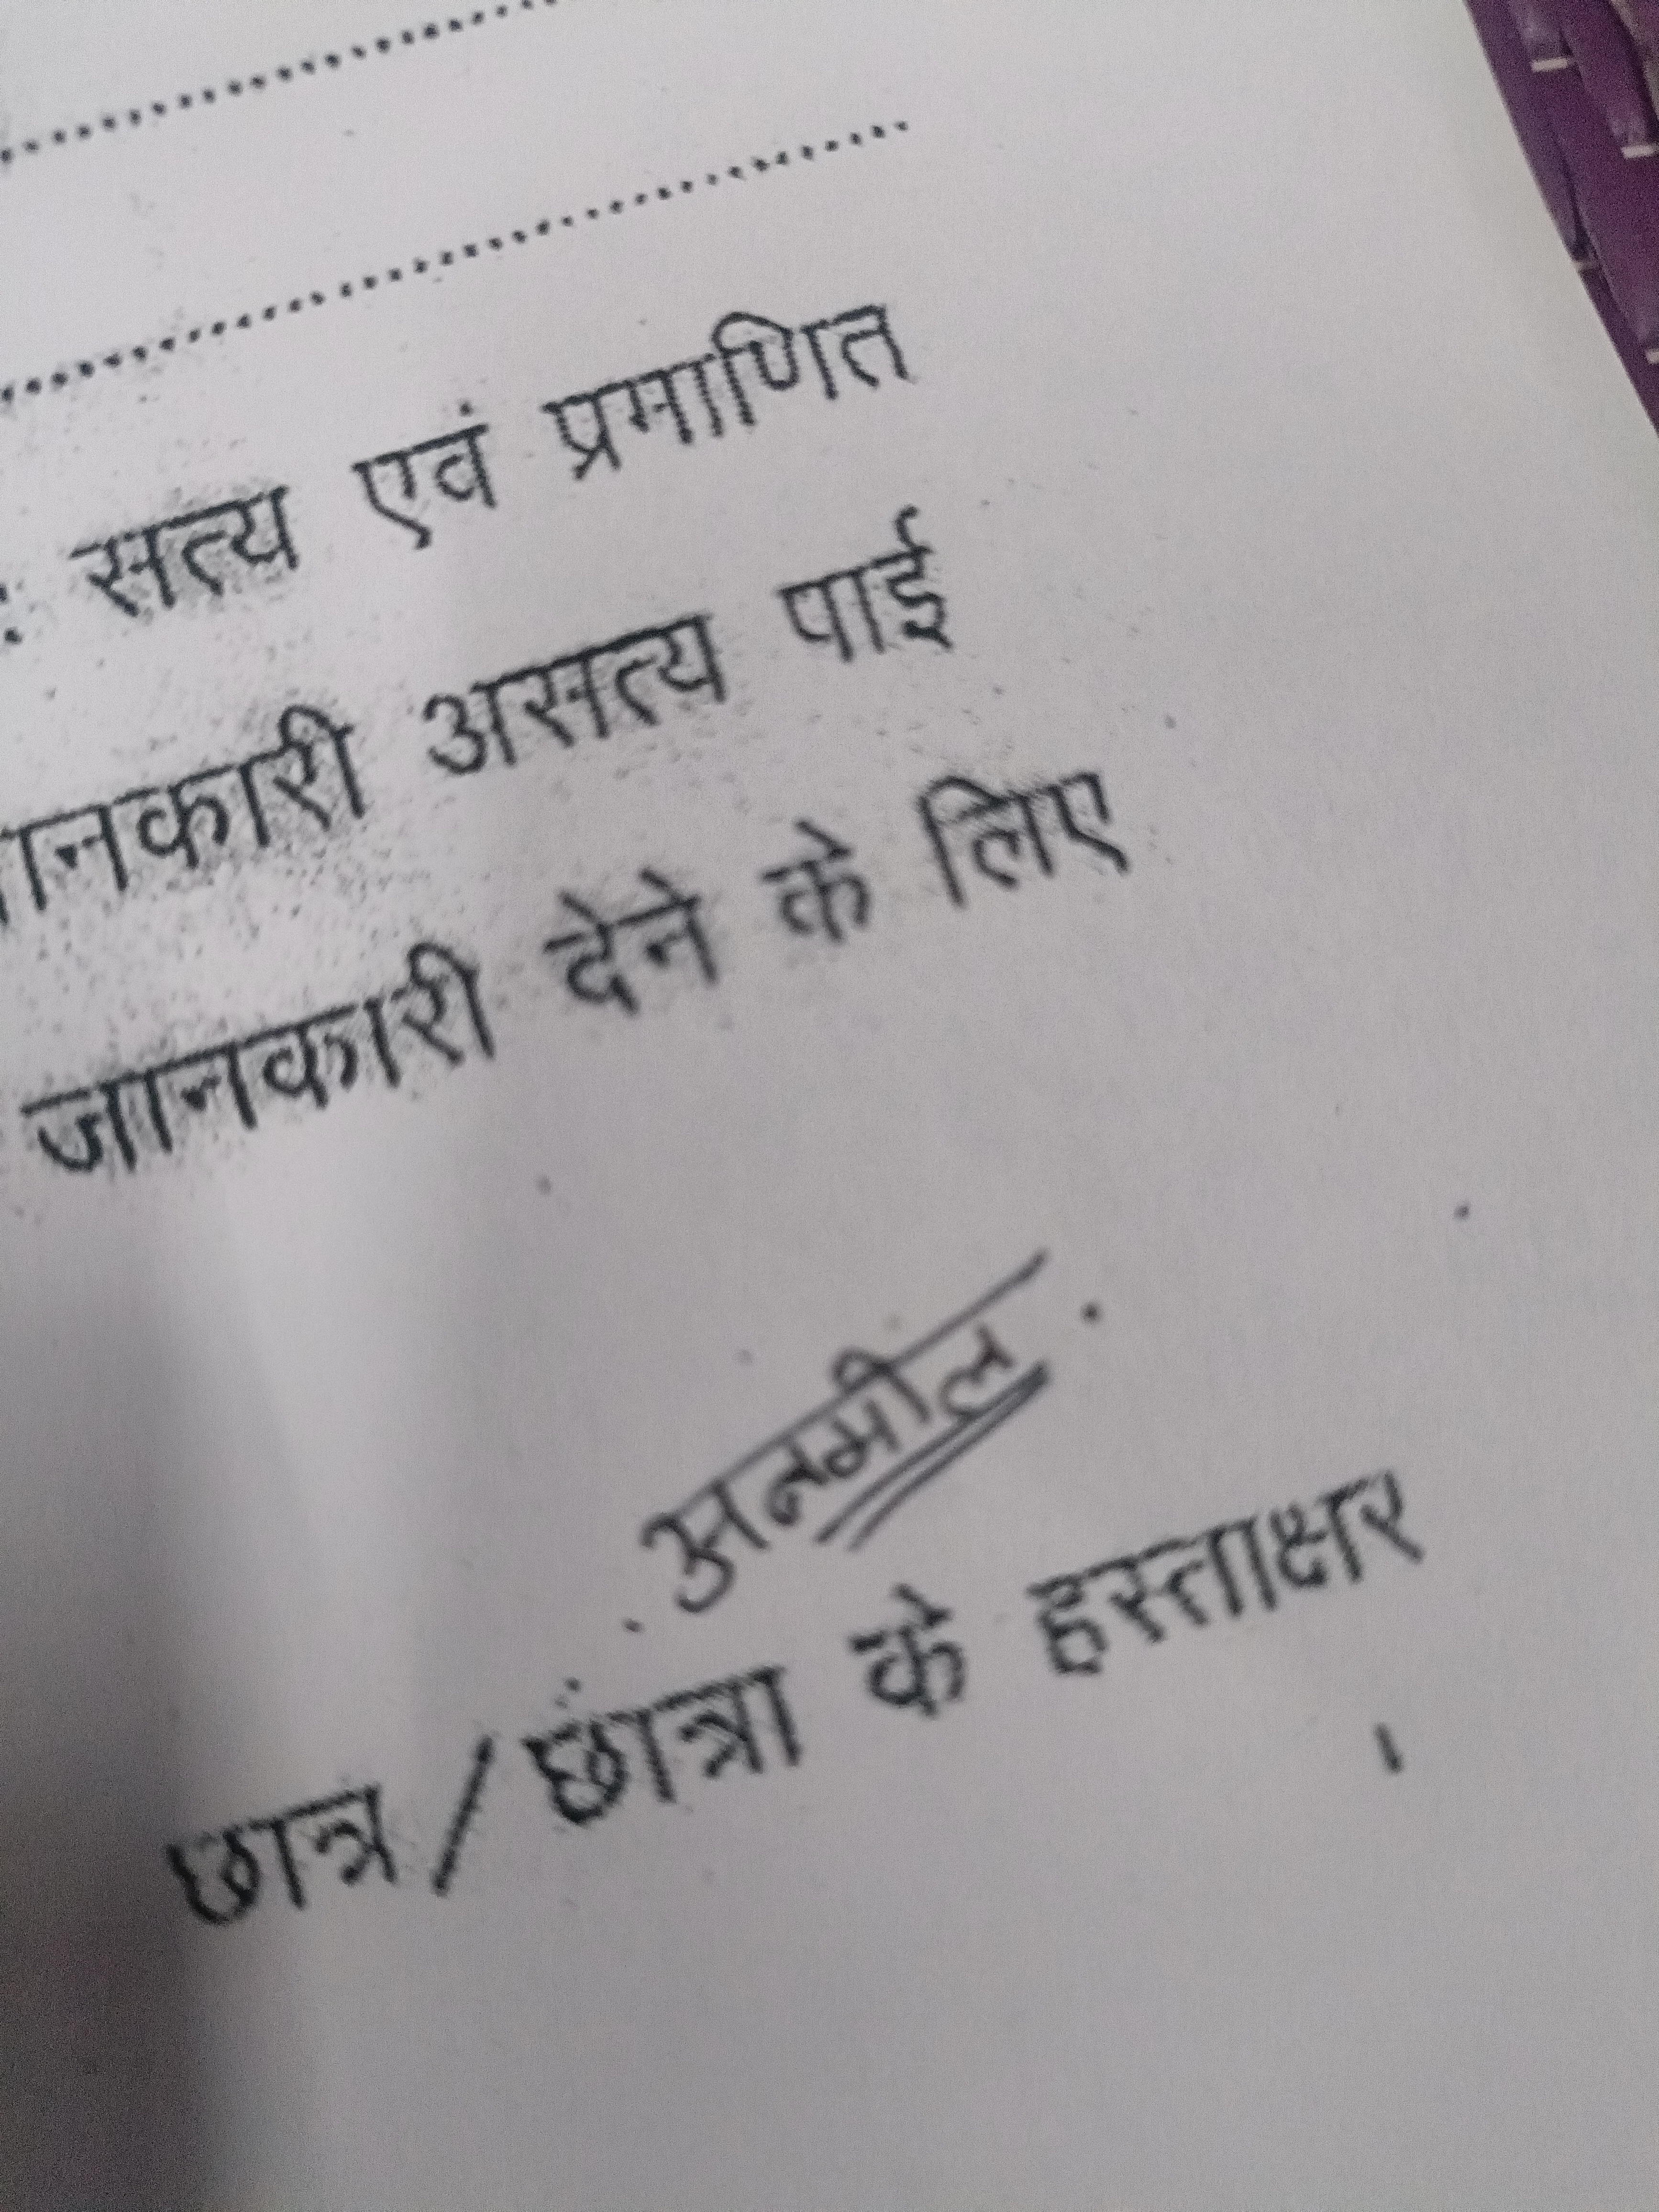 : सत्य एवं प्रमाणित
जानकारी असत्य पाई
जानकारी देने के लिए
अनमोल
छात्र/छात्रा के हस्ताक्षर